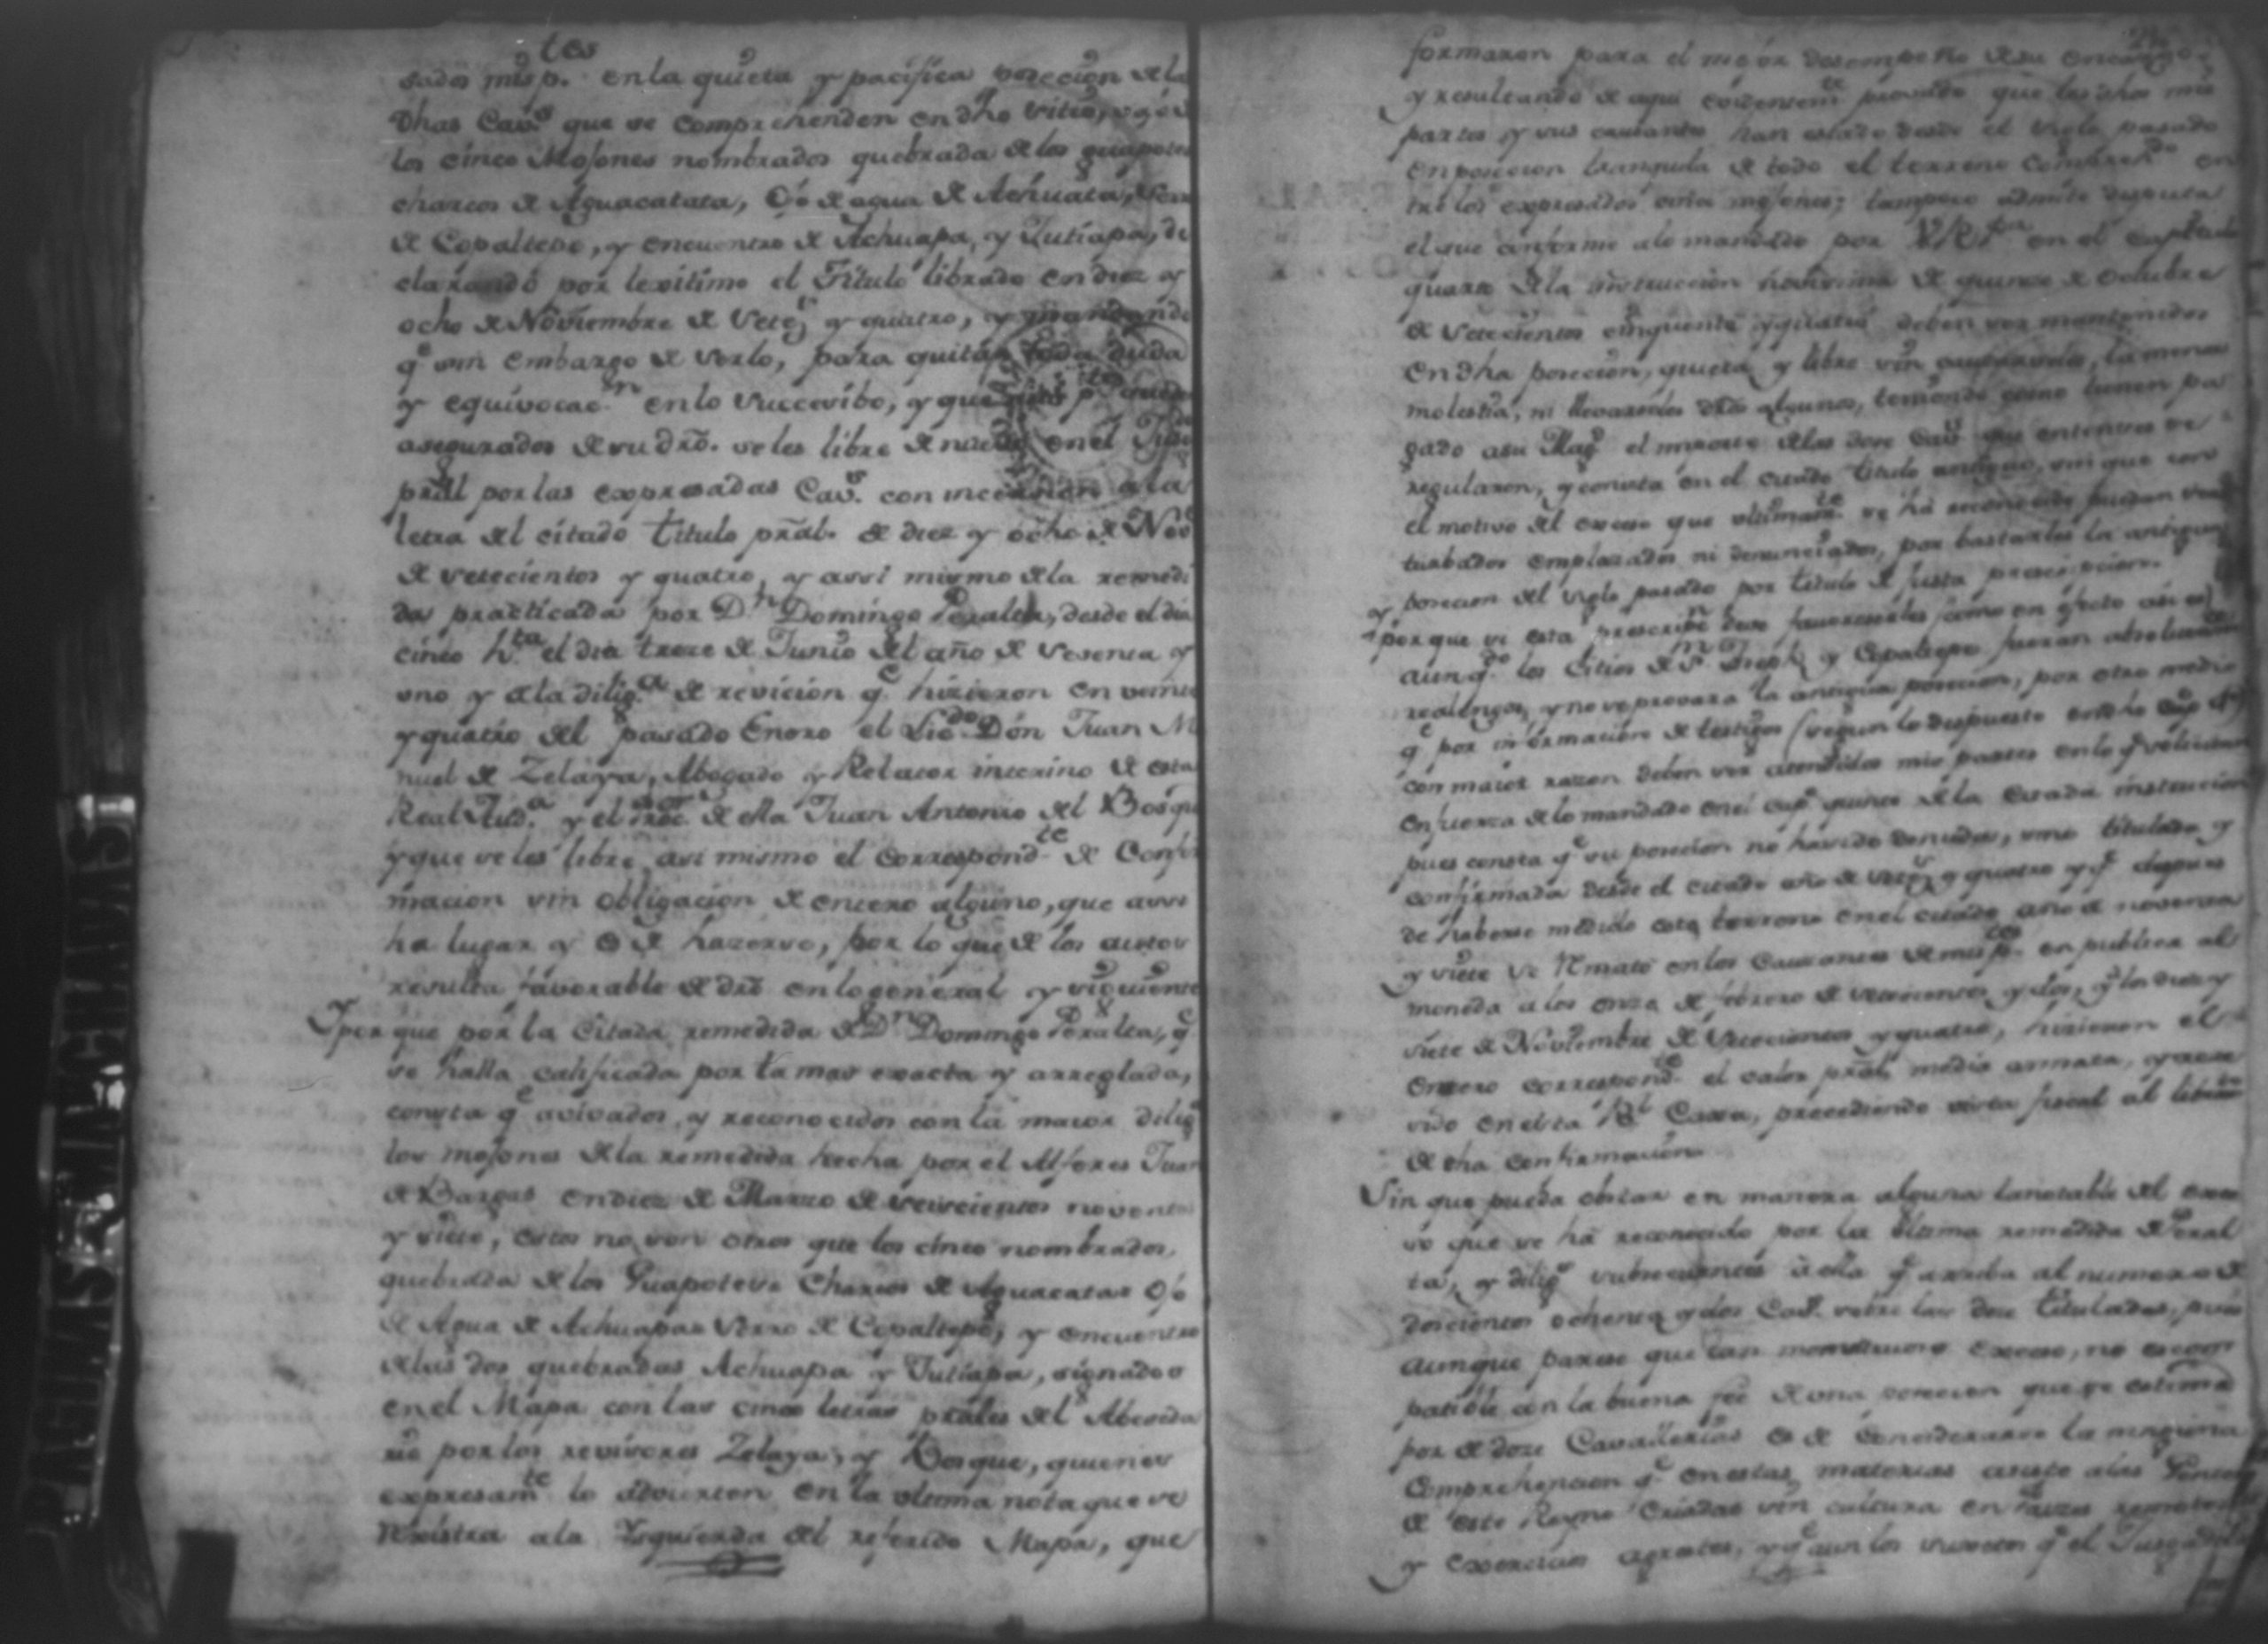 sados mis p.tes en la quieta y pacifica posecion de la
dhas Cav.s que se comprehenden en dho sitio, vajo de
los cinco Mojones nombrados quebrada de los guapotes
charcos de Aguacatata, Ojo de agua de Achuata,
de Copaltepe, y encuentro de Achuapa, y Jutiapa, de
clarando por lexitimo el Titulo librado en diez y
ocho de Noviembre de Setes y quatro, y mandando
q.e sin embargo de serlo, para quitar toda duda
y equivocac.n en lo succesibo, y que mis p.tes queden
asegurados de su dro. se les libre de nuebo en el
pral por las expresadas Cav.s con incercion a la
letra del citado titulo pral. de diez y ocho de Nov
de setecientos y quatro, y assi mismo de la remedi
da practicada por D.n Domingo Peralta, desde el dia
cinco h.ta el dia treze de Junio del año de sesenta y
uno y de la dilig.a de revicion q.e hizieron en veinte
y quatro del pasado Enero el Lic.do Dón Juan Ma
nuel de Zelaya, Abogado y Relator interino de esta
Real Aud.a y el de ella Juan Antonio del Bosque
y que se les libre asi mismo el correspond.te de Confir
macion sin obligacion de entero alguno, que assi
ha lugar y es de hazerse, por lo que de los autos
resulta favorable de dro en lo general y siguiente
Y por que por la Citada remedida de D.n Domingo Peralta, q.e
se halla calificada por la mas exacta y arreglada,
consta q.e avivados, y reconocidos con la maior dilig
los mojones de la remedida hecha por el Alferes Juan
de Bargas en diez de Marzo de seiscientos noventa
y siete, estos no son otros que los cinco nombrados,
quebrada de los Guapotes Charcos de Aguacatas Ojo
de Agua de Achuapas Serro de Copaltepe, y encuentro
de las dos quebradas Achuapa y Jutiapa, signados
en el Mapa con las cinco letras prales del Abeceda
rio por los revisores Zelaya, y Bosque, quienes
expresam.te lo advierten en la ultima nota que se
Rexistra a la Izquierda del referido Mapa, que
formaron para el mejor desempeño de su encargo
y resultando de aqui evidentem.te provado que las dhas mis
partes y sus causantes han estado desde el siglo pasado
en posecion tranquila de todo el terreno comprehen.do en
tre los expresados cinco mojones; tampoco admite disputa
el que conforme a lo mandado por en el capitulo
quarto de la instruccion de quinze de octubre
de setecientos cinquenta y quatro deben ser mantenidos
en dha posecion, quieta y libre sin la menor
molestia, ni llevarseles dros algunos, teniendo como tienen pa
gado a su Mag.d el importe de las doze Cav.s que entonces se
regularon, y consta en el citado titulo antiguo, sin que con
el motivo del exceso que ultimam.te se ha reconocido puedan ser
turbados emplazados ni denunciados, por bastarles la antigua
posecion del siglo pasado por titulo de justa prescripcion.
Y porque si esta deve favorecerles como en efecto asi es
aunq.do los Sitios de S.n Joseph y Copaltepe fueran absolutam.te
realengos, y no se provara la antigua posecion, por otro medio
q.e por informacion de testigos segun lo dispuesto en dho cap.
con maior razon deben ser atendidos mis partes en lo q.e solicitan
en fuerza de lo mandado en el cap.o quinto de la citada instruccion
pues consta q.e su posecion no ha sido desnuda, sino titulada y
confirmada desde el citado año de sets y quatro y q.e despues
de haberse medido este terreno en el citado año de noventa
y siete se Rmato en los Causantes de mis p.tes en publica al
moneda a los onze de febrero de setecientos y dos, y a los diez y
siete de Noviembre de setecientos y quatro, hizieron el
entero correspond.te el valor pral, media annata, y
vido en esta R.l Caxa, precediendo vista fiscal al
de dha confirmacion
Sin que pueda obstar en manera alguna lo notable del exce
so que se ha reconocido por la ultima remedida de Peral
ta, y dilig.s subsecuentes a ella q.e arriba al numero de
doscientos ochenta y dos Cav.s sobre las doze tituladas, pues
aunque parese que tan monstruoso exceso, no es com
patible con la buena feé de una posecion que se estima
por de doze Cavallerias es de considerarse la ninguna
Comprehencion q.e en estas materias asiste a las Gentes
de este Reyno Criadas sin cultura en
y exercicios agrestes, y q.e aun los sujetos q.e el Juzgado